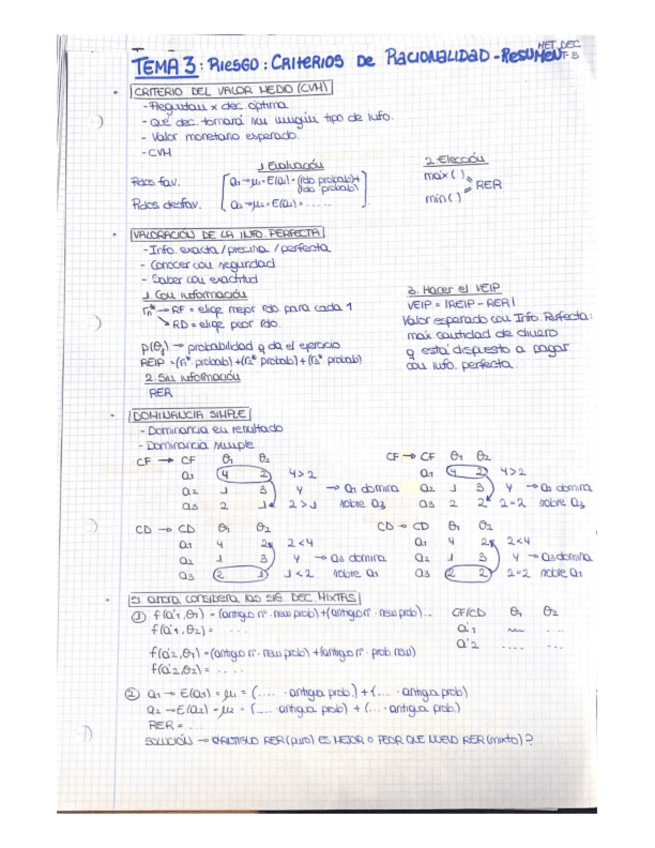 MET DEC
T-3
TEMA 3: RIESGO: CRITERIOS DE RACIONALIDAD - RESUMEN
CRITERIO DEL VALOR MEDIO (CVM)
- Preguntan x dec. óptima
- Qué dec. tomará sin ningún tipo de info.
- Valor monetario esperado
- CVM
1. Evaluación
2. Elección
Rdos fav.
a₁ → μ₁ = E(a₁) = (rdo · probab) + (rdo · probab)
max ( )
RER
Rdos desfav.
a₂ → μ₂ = E(a₂) = .....
min ( )
VALORACIÓN DE LA INFO PERFECTA
- Info. exacta / precisa / perfecta
- Conocer con seguridad
- Saber con exactitud
1. Con información
→ RF = elige mejor rdo para cada 1
→ RD = elige peor rdo.
p(θj) → probabilidad q da el ejercicio
REIP = (r₁* · probab) + (r₂* · probab) + (r₃* · probab)
2. Sin información
RER
3. Hacer el VEIP
VEIP = |REIP - RER|
Valor esperado con Info. Perfecta:
max cantidad de dinero
q está dispuesto a pagar
con info. perfecta.
DOMINANCIA SIMPLE
- Dominancia en resultado
- Dominancia simple
CF → CF θ₁ θ₂
a₁ 4 2 4>2
a₂ 1 3 y → a₁ domina
a₃ 2 1 2>1 sobre a₃
CF → CF θ₁ θ₂
a₁ 4 2 4>2
a₂ 1 3 y → a₁ domina
a₃ 2 2 2=2 sobre a₃
CD → CD θ₁ θ₂
a₁ 4 2 2<4
a₂ 1 3 y → a₃ domina
a₃ 2 1 1<2 sobre a₁
CD → CD θ₁ θ₂
a₁ 4 2 2<4
a₂ 1 3 y → a₃ domina
a₃ 2 2 2=2 sobre a₁
SI ahora considera las SIG. DEC. MIXTAS
① f(a'₁, θ₁) = (antiguo nº · new prob) + (antiguo nº · new prob)...
f(a'₁, θ₂) = ....
f(a'₂, θ₁) = (antiguo nº · new prob) + (antiguo nº · prob new)
f(a'₂, θ₂) = ....
CF/CD θ₁ θ₂
a'₁ ...
a'₂ .... ...
② a₁ → E(a₁) = μ₁ = (.... · antigua prob.) + (... · antigua prob)
a₂ → E(a₂) = μ₂ = (.... · antigua prob) + (... · antigua prob.)
RER = ...
SOLUCIÓN → ANTIGUO RER (puro) ES MEJOR O PEOR QUE NUEVO RER (mixto)?